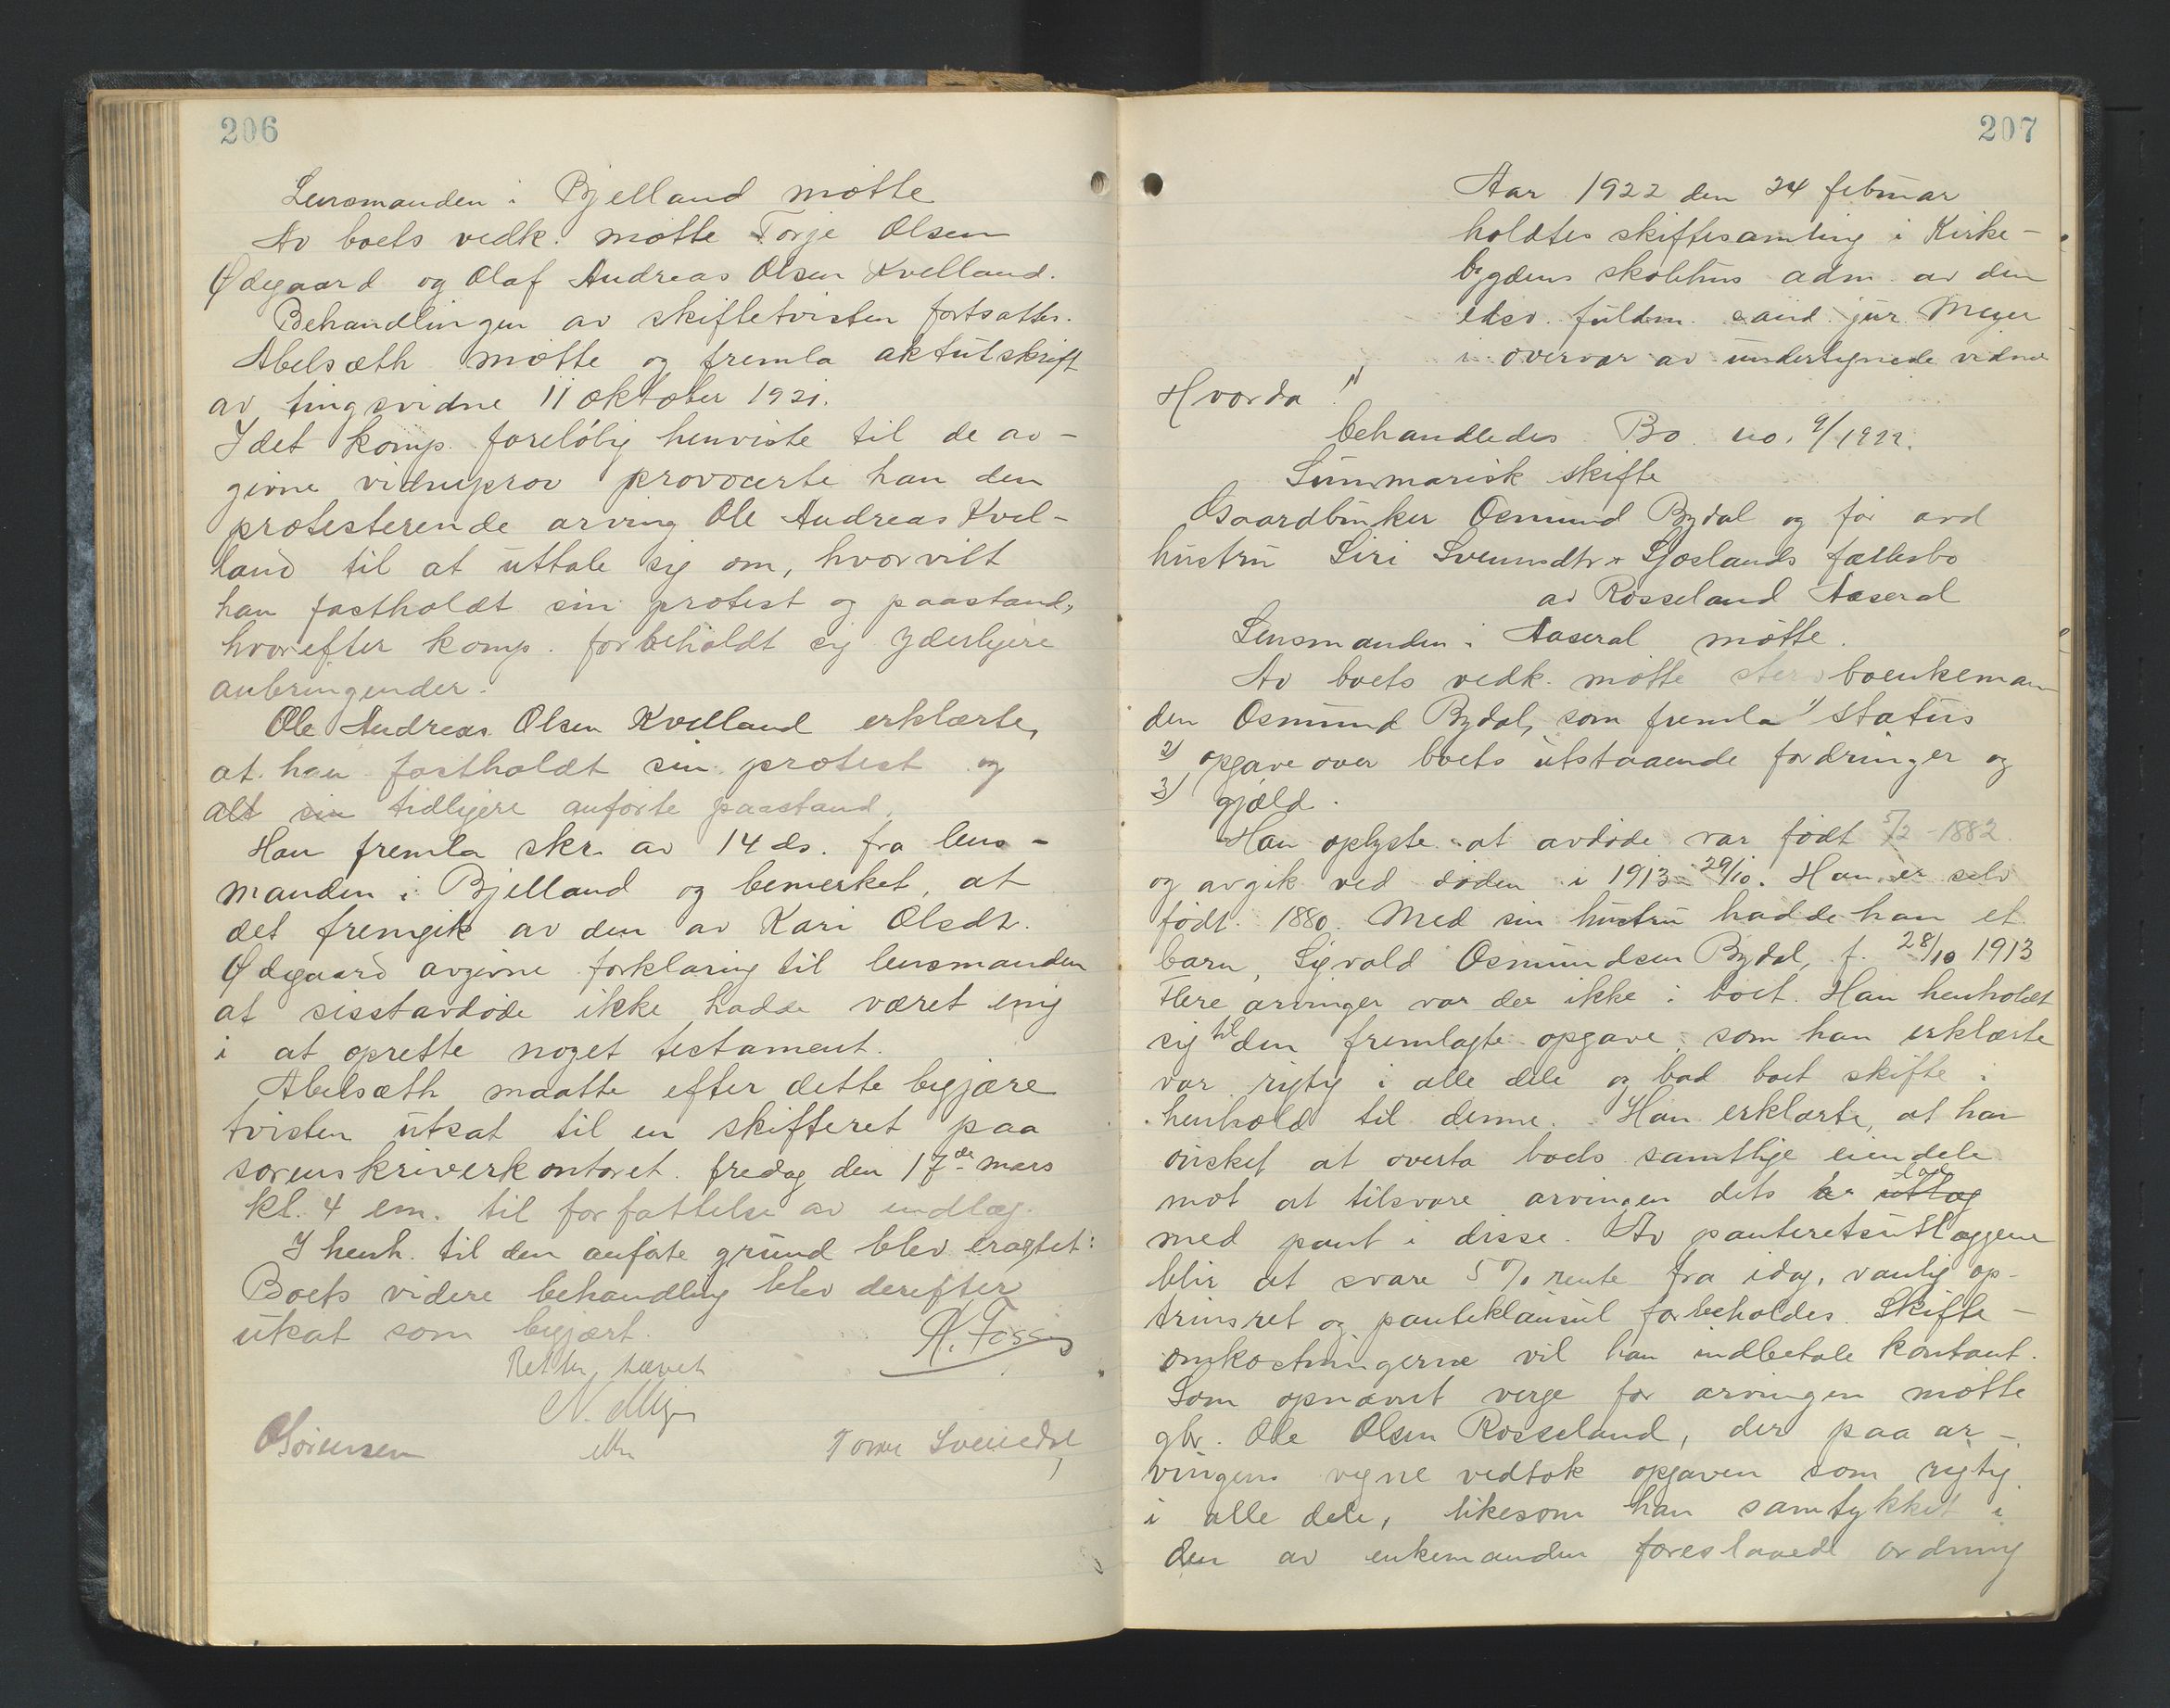 206
Lensmanden i Bjelland møtte
Av boets vedk. møtte Torje Olsen
Ødegaard og Olaf Andreas Olsen Kvelland.
Behandlingen av skiftetvisten fortsattes.
Abelsæth møtte og fremla aktutskrift
av tingsvidne 11 oktober 1921.
Idet komp. foreløbig henviste til de av-
givne vidneprov provocerte han den
protesterende arving Ole Andreas Kvel-
land til at uttale sig om, hvorvidt
han fastholdt sin protest og paastand,
hvorefter komp. forbeholdt sig yderligere
anbringender.
Ole Andreas Olsen Kvelland erklærte,
at han fastholdt sin protest og
alt sin tidligere anførte paastand.
Han fremla skr. av 14 ds. fra lens-
manden i Bjelland og bemerket, at
det fremgik av den av Kari Olsdt.
Ødegaard avgivne forklaring til lensmanden
at sisstavdøde ikke hadde været enig
i at oprette noget testament.
Abelsæth maatte efter dette begjære
tvisten utsat til en skifteret paa
sorenskriverkontoret fredag den 17de mars
kl. 4 em. til forfattelse av indlæg.
I henh. til den anførte grund blev eragtet:
Boets videre behandling blev derefter
utsat som begjært.
Retten hævet
N. Meyer
OSørensen
Tomme
207
Aar 1922 den 24 februar
holdtes skiftesamling i Kirke-
bygdens skolehus adm. av den
edsv. fuldm. cand. jur. Meyer
i overvær av undertegnede vidner
Hvorda!"
behandledes Bo no. 9/1922.
Summarisk skifte
Gaardbruker Osmund Bydal og før avd
hustru Siri Svennsdtr. Ljoslands fællesbo
av Rosseland Aaseral
Lensmanden i Aaseral møtte.
Av boets vedk. møtte boenkeman-
den Osmund Bydal, som fremla 1) status
2) opgave over boets utstaaende fordringer og
3) gjæld.
Han oplyste at avdøde var født 5/2-1882
og avgik ved døden i 1913 29/10. Han er selv
født 1880. Med sin hustru hadde han et
barn, Sigvald Osmundsen Bydal, f. 28/10 1913
Flere arvinger var der ikke i boet. Han henholdt
sig til den fremlagte opgave, som han erklærte
var rigtig i alle dele og bad boet skifte i
henhold til denne. Han erklærte, at han
ønsket at overta boets samtlige eiendele
mot at tilsvare arvingen dets utlæg
med pant i disse. Av panteretsutlæggene
blir at svare 5% rente fra idag, vanlig op-
trinsret og panteklausul forbeholdes. Skifte-
omkostningerne vil han indbetale kontant.
Som opnævnt verge for arvingen møtte
gbr. Ole Olsen Rosseland, der paa ar-
vingens vegne vedtok opgaven som rigtig
i alle dele, likesom han samtykket i
den av enkemanden foreslaaede ordning